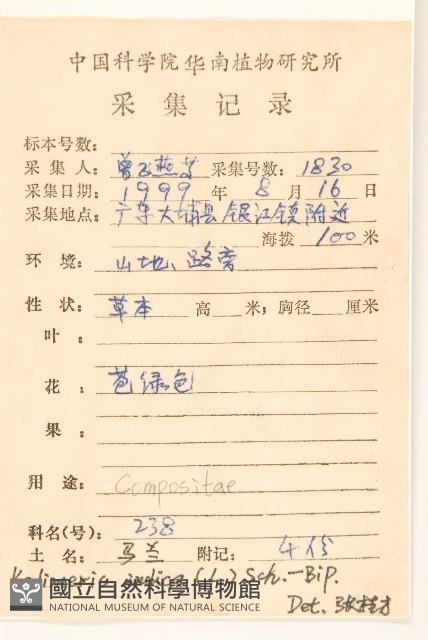 中国科学院华南植物研究所
采集记录
标本号数：
采集人：曾飞燕等 采集号数：1830
采集日期：1999 年 8 月 16 日
采集地点：广东大埔县银江镇附近
海拨 100 米
环境：山地、路旁
性状：草本 高 米；胸径 厘米
叶：
花：苞绿色
果：
用途：Compositae
科名(号)：238
土名：马兰 附记：4份
Kalimeris indica (L.) Sch.-Bip.
國立自然科學博物館
NATIONAL MUSEUM OF NATURAL SCIENCE
Det.